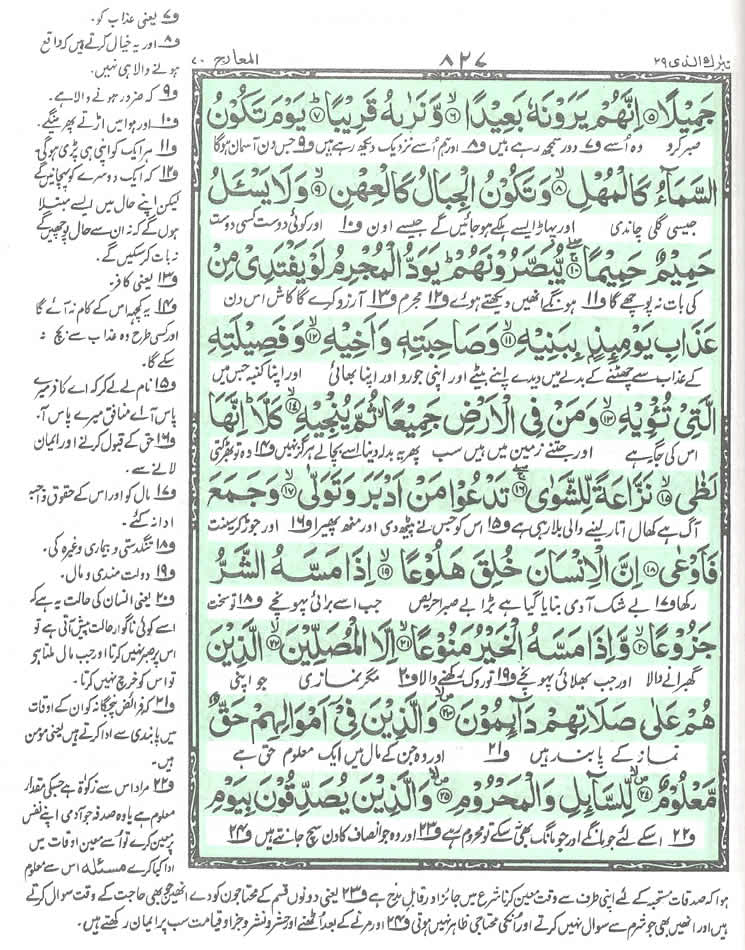 تبٰرك الذی ۲۹
۸۲۷
المعارج ۷۰
جَمِيْلًا ﴿۵﴾ اِنَّهُمْ يَرَوْنَهٗ بَعِيْدًا ﴿۶﴾ وَّنَرٰىهُ قَرِيْبًا ﴿۷﴾ يَوْمَ تَكُوْنُ
صبر کرو وہ اُسے ف۷ دور سمجھ رہے ہیں ف۸ اور ہم اُسے نزدیک دیکھ رہے ہیں ف۹ جس دن آسمان ہوگا
السَّمَآءُ كَالْمُهْلِ ﴿۸﴾ وَتَكُوْنُ الْجِبَالُ كَالْعِهْنِ ﴿۹﴾ وَلَا يَسْـَٔلُ
جیسی گلی چاندی اور پہاڑ ایسے ہلکے ہوجائیں گے جیسے اون ف۱۰ اور کوئی دوست کسی دوست
حَمِيْمٌ حَمِيْمًا ﴿۱۰﴾ يُّبَصَّرُوْنَهُمْ يَوَدُّ الْمُجْرِمُ لَوْ يَفْتَدِىْ مِنْ
کی بات نہ پوچھے گا ف۱۱ ہونگے انھیں دیکھتے ہوئے ف۱۲ مجرم ف۱۳ آرزو کرے گا کاش اس دن
عَذَابِ يَوْمِئِذٍۭ بِبَنِيْهِ ﴿۱۱﴾ وَصَاحِبَتِهٖ وَاَخِيْهِ ﴿۱۲﴾ وَفَصِيْلَتِهِ
کے عذاب سے چھٹنے کے بدلے میں دیدے اپنے بیٹے اور اپنی جورو اور اپنا بھائی اور اپنا کنبہ جس میں
الَّتِىْ تُـْٔوِيْهِ ﴿۱۳﴾ وَمَنْ فِى الْاَرْضِ جَمِيْعًا ثُمَّ يُنْجِيْهِ ﴿۱۴﴾ كَلَّا اِنَّهَا
اس کی جگہ ہے اور جتنے زمین میں ہیں سب پھر یہ بدلہ دینا اسے بچالے ہرگز نہیں ف۱۴ وہ تو بھڑکتی
لَظٰى ﴿۱۵﴾ نَزَّاعَةً لِّلشَّوٰى ﴿۱۶﴾ تَدْعُوْا مَنْ اَدْبَرَ وَتَوَلّٰى ﴿۱۷﴾ وَجَمَعَ
آگ ہے کھال اتار لینے والی بلا رہی ہے ف۱۵ اس کو جس نے پیٹھ دی اور منھ پھیرا ف۱۶ اور جوڑ کر سینت
فَاَوْعٰى ﴿۱۸﴾ اِنَّ الْاِنْسَانَ خُلِقَ هَلُوْعًا ﴿۱۹﴾ اِذَا مَسَّهُ الشَّرُّ
رکھا ف۱۷ بے شک آدمی بنایا گیا ہے بڑا بے صبرا حریص جب اسے برائی پہونچے ف۱۸ تو سخت
جَزُوْعًا ﴿۲۰﴾ وَّاِذَا مَسَّهُ الْخَيْرُ مَنُوْعًا ﴿۲۱﴾ اِلَّا الْمُصَلِّيْنَ ﴿۲۲﴾ الَّذِيْنَ
گھبرانے والا اور جب بھلائی پہونچے ف۱۹ تو روک رکھنے والا ف۲۰ مگر نمازی جو اپنی
هُمْ عَلٰى صَلَاتِهِمْ دَآىِٕمُوْنَ ﴿۲۳﴾ وَالَّذِيْنَ فِىْٓ اَمْوَالِهِمْ حَقٌّ
نماز کے پابند ہیں ف۲۱ اور وہ جن کے مال میں ایک معلوم حق ہے
مَّعْلُوْمٌ ﴿۲۴﴾ لِّلسَّآىِٕلِ وَالْمَحْرُوْمِ ﴿۲۵﴾ وَالَّذِيْنَ يُصَدِّقُوْنَ بِيَوْمِ
ف۲۲ اسکے لئے جو مانگے اور جو مانگ بھی نہ سکے تو محروم رہے ف۲۳ اور وہ جو انصاف کا دن سچ جانتے ہیں ف۲۴
ف۷ یعنی عذاب کو۔
ف۸ اور یہ خیال کرتے ہیں کہ واقع
ہونے والا ہی نہیں۔
ف۹ کہ ضرور ہونے والا ہے۔
ف۱۰ اور ہوا میں اڑتے پھریںگے۔
ف۱۱ ہر ایک کو اپنی ہی پڑی ہوگی
ف۱۲ کہ ایک دوسرے کو پہچانیں گے
لیکن اپنے حال میں ایسے مبتلا
ہوں گے کہ نہ ان سے حال پوچھیں گے
نہ بات کرسکیں گے۔
ف۱۳ یعنی کافر۔
ف۱۴ یہ کچھ اس کے کام نہ آئے گا
اور کسی طرح وہ عذاب سے بچ نہ
سکے گا۔
ف۱۵ نام لے لے کر کہ اے کافر میرے
پاس آ اے منافق میرے پاس آ۔
ف۱۶ حق کے قبول کرنے اور ایمان
لانے سے۔
ف۱۷ مال کو اور اس کے حقوق واجبہ
ادا نہ کئے۔
ف۱۸ تنگدستی و بیماری وغیرہ کی۔
ف۱۹ دولت مندی و مال۔
ف۲۰ یعنی انسان کی حالت یہ ہے کہ
اسے کوئی ناگوار حالت پیش آتی ہے تو
اس پر صبر نہیں کرتا اور جب مال ملتا ہے
تو اس کو خرچ نہیں کرتا۔
ف۲۱ کہ فرائض پنجگانہ کو ان کے اوقات
میں پابندی سے ادا کرتے ہیں یعنی مؤمن
ہیں۔
ف۲۲ مراد اس سے زکوٰۃ ہے جسکی مقدار
معلوم ہے یا وہ صدقہ جو آدمی اپنے نفس
پر معین کرے تو اُسے معین اوقات میں
ادا کیا کرے مسئلہ اس سے معلوم
ہوا کہ صدقات مستحبہ کے لئے اپنی طرف سے وقت معین کرنا شرع میں جائز اور قابل مدح ہے ف۲۳ یعنی دونوں قسم کے محتاجوں کو دے انھیں بھی جو حاجت کے وقت سوال کرتے
ہیں اور انھیں بھی جو شرم سے سوال نہیں کرتے اور اُنکی محتاجی ظاہر نہیں ہوتی ف۲۴ اور مرنے کے بعد اٹھنے اور حشر و نشر و جزا و قیامت سب پر ایمان رکھتے ہیں۔